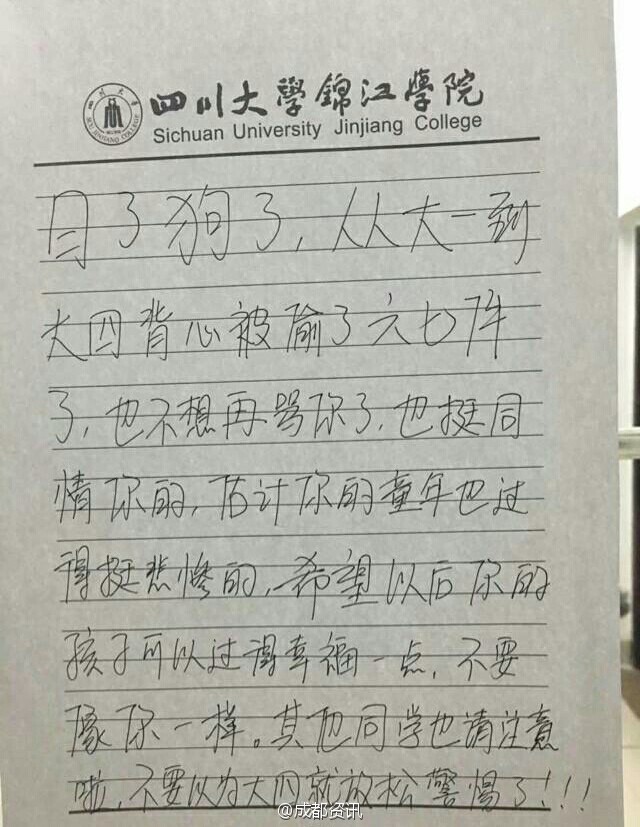 四川大學錦江學院
Sichuan University Jinjiang College
日了狗了，从大一到
大四背心被偷了六七件
了，也不想再骂你了，也挺同
情你的，估计你的童年也过
得挺悲惨的，希望以后你的
孩子可以过得幸福一点，不要
像你一样。其他同学也请注意
啦，不要以为大四就放松警惕了！！！
@成都资讯